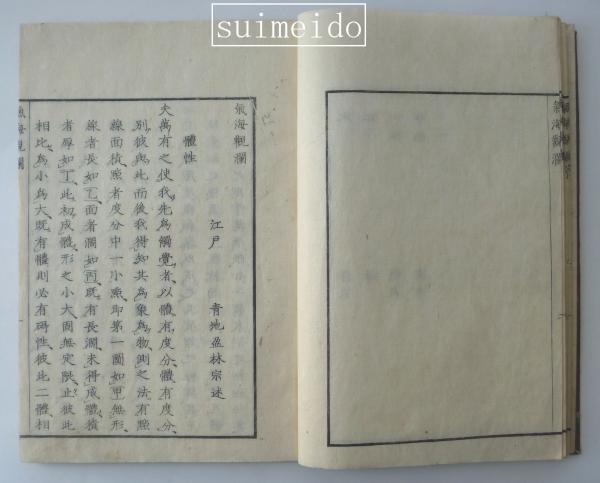 suimeido
氣海觀瀾
江戸 青地盈林宗述
體性
夫萬有之使我先爲觸覺者以體有度分體有度分
別彼與此而後我得知其爲象爲物測之法有㸃
線面積㸃者度分中一小㸃即第一圖如甲無形
線者長如乙面者濶如丙既有長濶未得成體積
者厚如丁此初成體形之小大固無定限止彼此
相比爲小爲大既有體則必有碍性彼此二體相
氣海觀瀾
氣海觀瀾